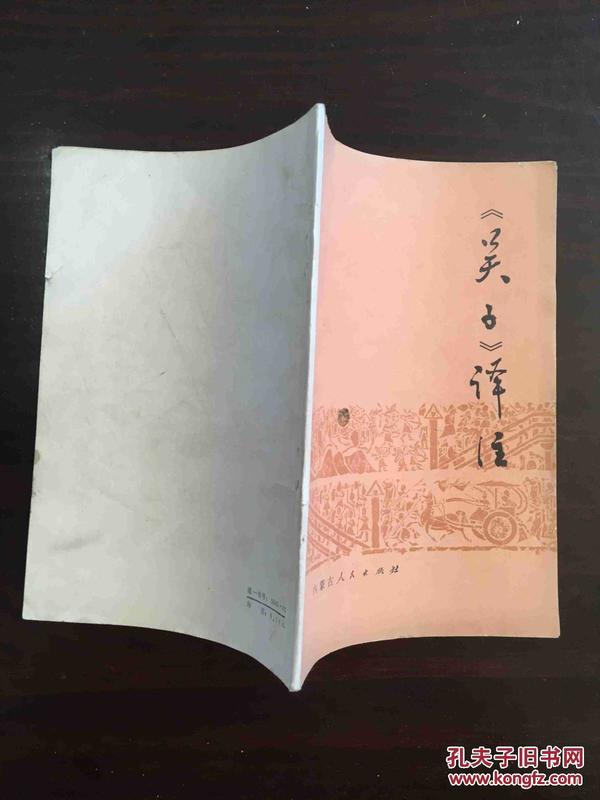 《吴子》译注
内蒙古人民出版社
统一书号：
孔夫子旧书网
www.kongfz.com